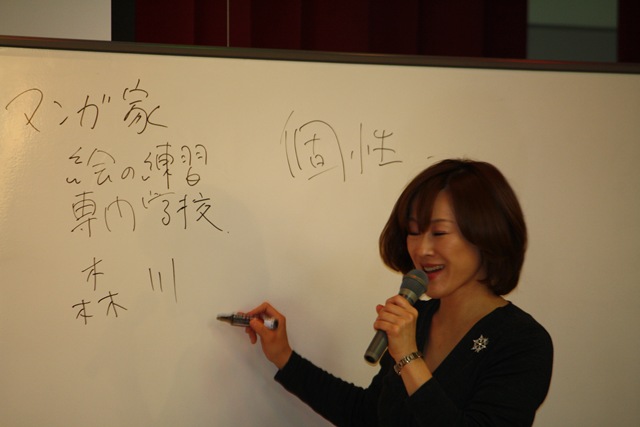 マンガ家
絵の練習
専門学校.
森 川
個性